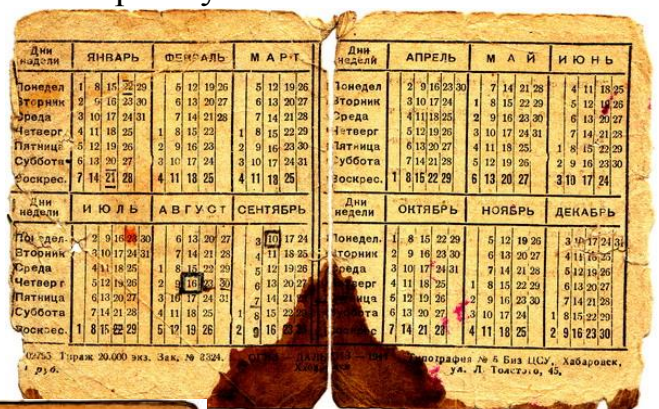 Дни недели ЯНВАРЬ ФЕВРАЛЬ МАРТ
Понедел 1 8 15 22 29 5 12 19 26 5 12 19 26
Вторник 2 9 16 23 30 6 13 20 27 6 13 20 27
Среда 3 10 17 24 31 7 14 21 28 7 14 21 28
Четверг 4 11 18 25 1 8 15 22 1 8 15 22 29
Пятница 5 12 19 26 2 9 16 23 2 9 16 23 30
Суббота 6 13 20 27 3 10 17 24 3 10 17 24 31
Воскрес. 7 14 21 28 4 11 18 25 4 11 18 25
Дни недели ИЮЛЬ АВГУСТ СЕНТЯБРЬ
Понедел. 2 9 16 23 30 6 13 20 27 3 10 17 24
Вторник 3 10 17 24 31 7 14 21 28 4 11 18 25
Среда 4 11 18 25 1 8 15 22 29 5 12 19 26
Четверг 5 12 19 26 2 9 16 23 30 6 13 20 27
Пятница 6 13 20 27 3 10 17 24 31 7 14 21
Суббота 7 14 21 28 4 11 18 25 1 8 15 22
Воскрес. 1 8 15 22 29 5 12 19 26 2 9 16 23
Тираж 20.000 экз. Зак. № 8324.
1 руб.
Дни недели АПРЕЛЬ МАЙ ИЮНЬ
Понедел 2 9 16 23 30 7 14 21 28 4 11 18 25
Вторник 3 10 17 24 1 8 15 22 29 5 12 19 26
Среда 4 11 18 25 2 9 16 23 30 6 13 20 27
Четверг 5 12 19 26 3 10 17 24 31 7 14 21 28
Пятница 6 13 20 27 4 11 18 25 1 8 15 22 29
Суббота 7 14 21 28 5 12 19 26 2 9 16 23 30
Воскрес. 1 8 15 22 29 6 13 20 27 3 10 17 24
Дни недели ОКТЯБРЬ НОЯБРЬ ДЕКАБРЬ
Понедел. 1 8 15 22 29 5 12 19 26 3 10 17 24 31
Вторник 2 9 16 23 30 6 13 20 27 4 11 18 25
Среда 3 10 17 24 31 7 14 21 28 5 12 19 26
Четверг 4 11 18 25 1 8 15 22 29 6 13 20 27
Пятница 5 12 19 26 2 9 16 23 30 7 14 21 28
Суббота 6 13 20 27 3 10 17 24 1 8 15 22 29
Воскрес. 7 14 21 28 4 11 18 25 2 9 16 23 30
Типография № 8 Биз ЦСУ, Хабаровск,
ул. Л. Толстого, 45.